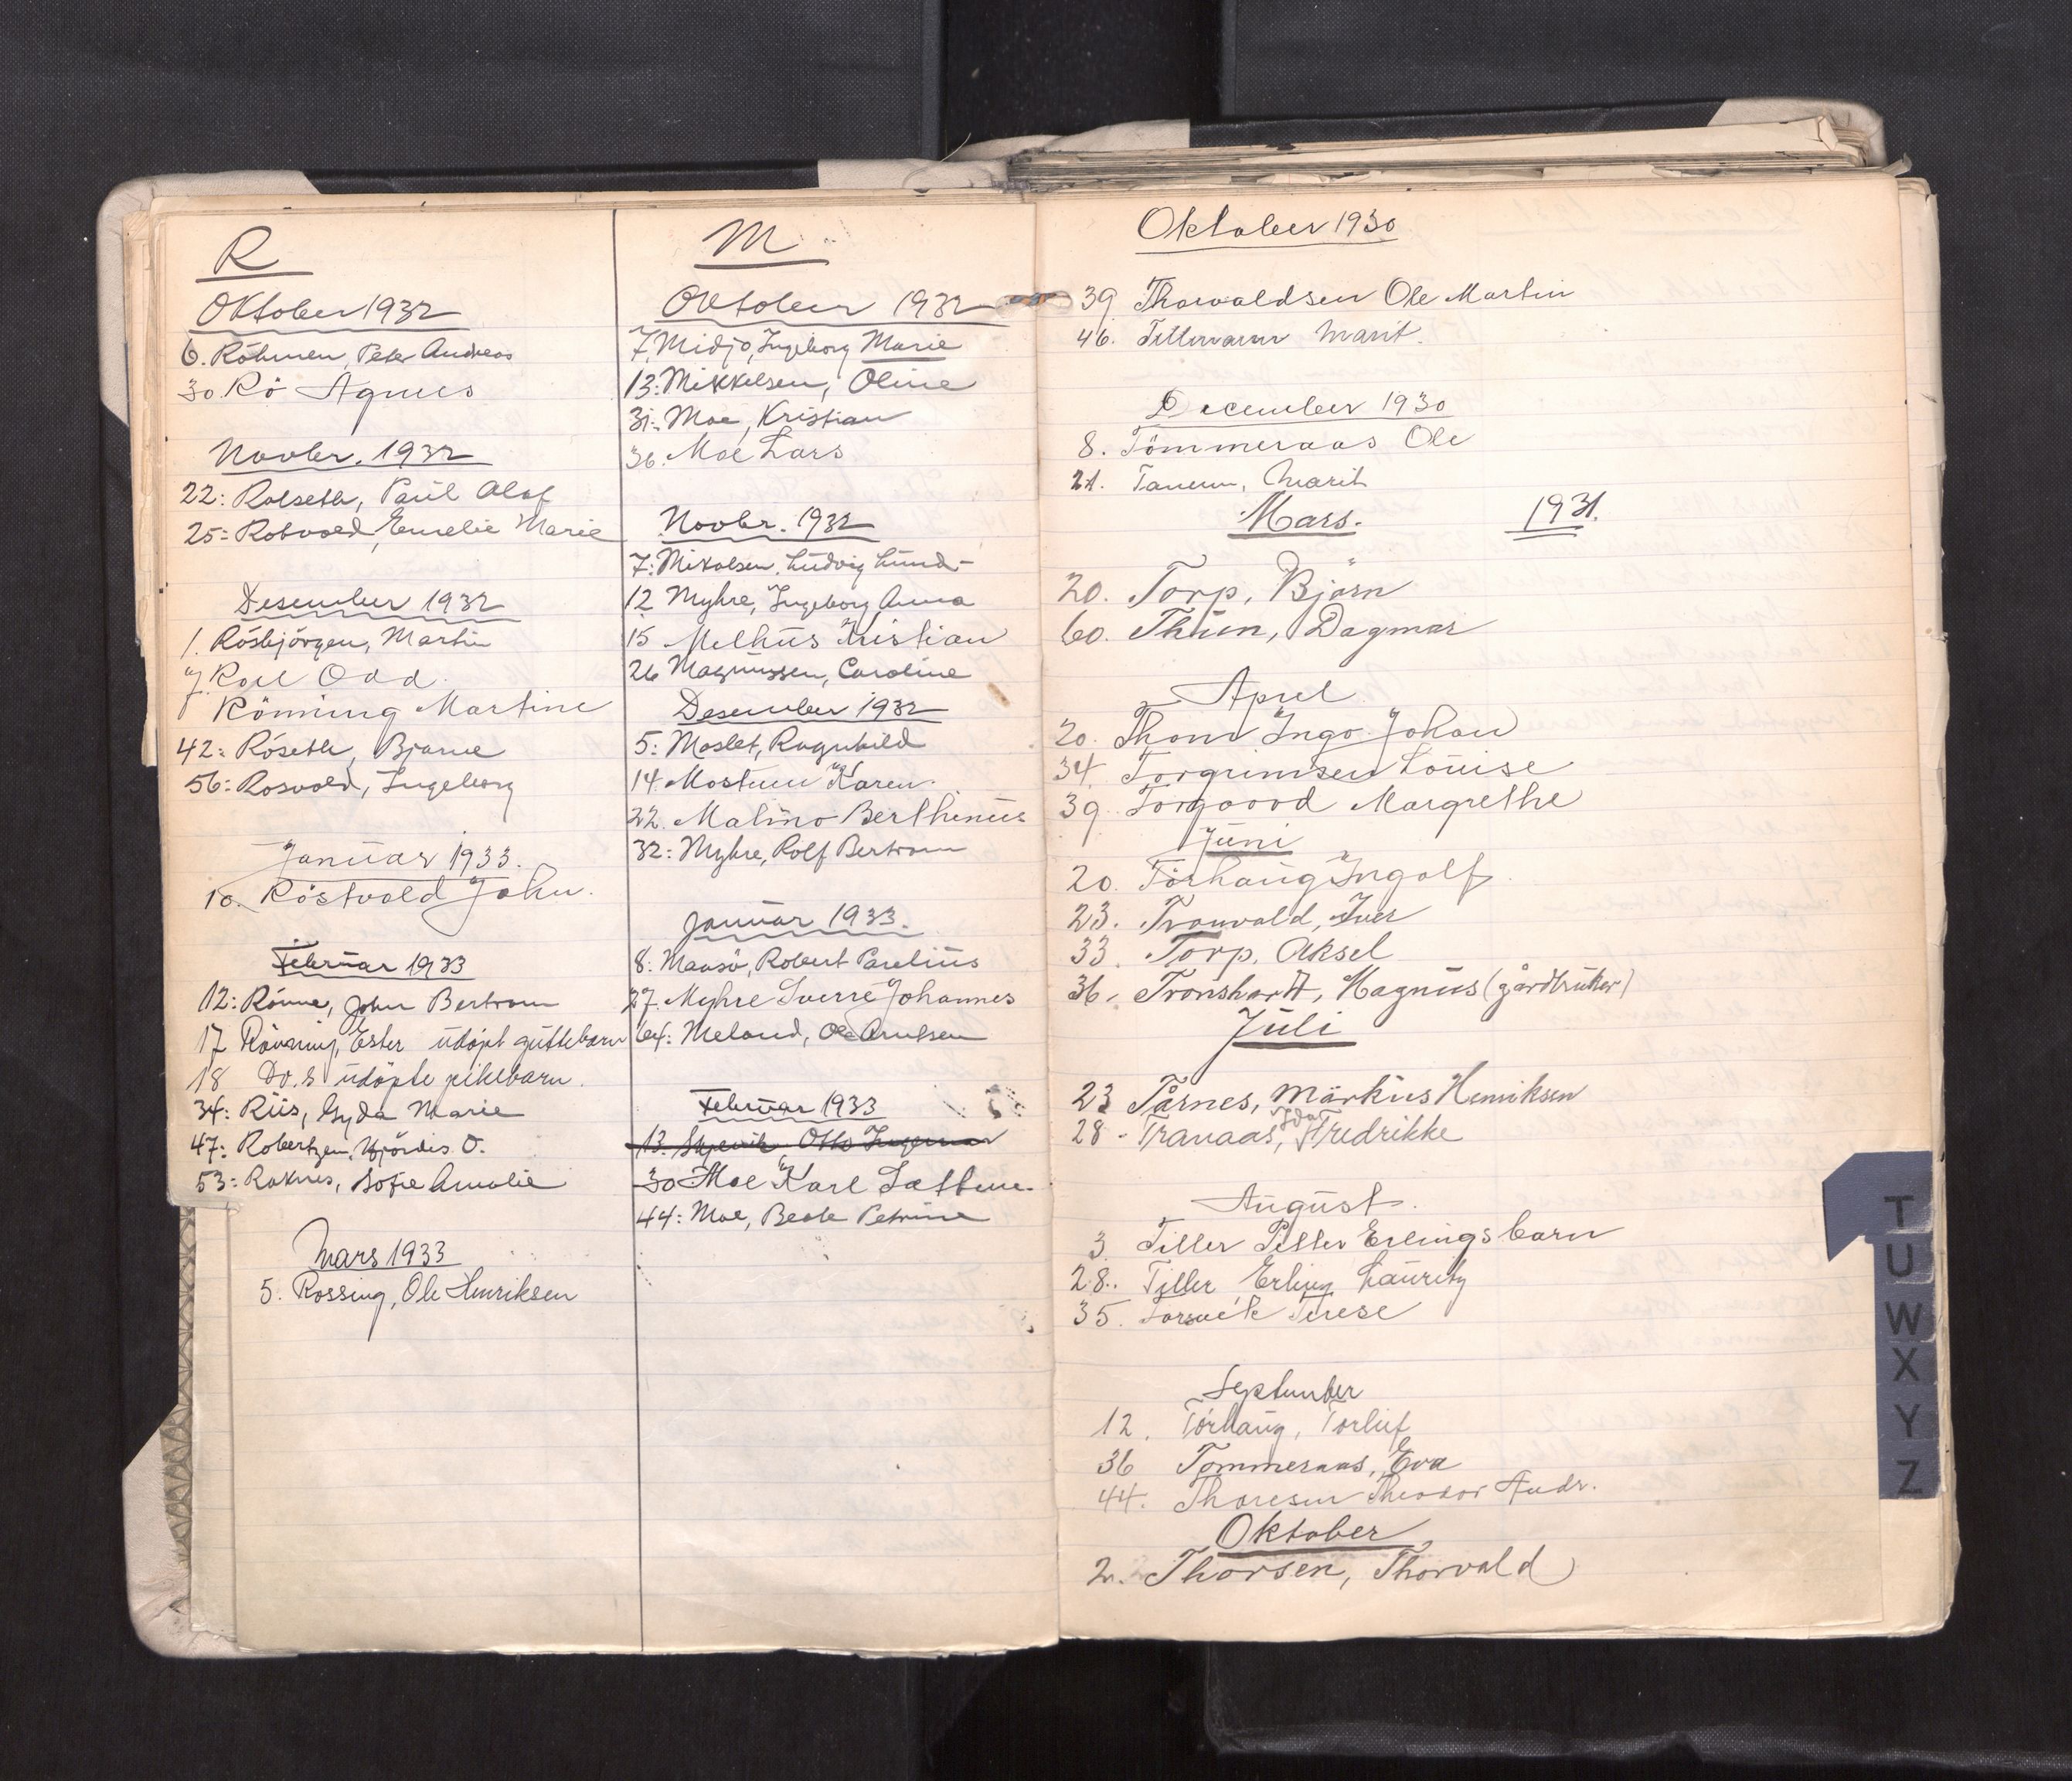 R
Oktober 1932
6. Röhmen, Peter Andreas
30. Rö Agnes
Novbr. 1932
22: Rolseth, Paul Olaf
25: Rotvold, Emelie Marie
Desember 1932
1. Rösbjörgen, Martin
7. Roel Odd
Rönning Martine
42: Röseth, Bjarne
56: Rosvold, Ingeborg
Januar 1933.
10. Röstvold John.
Februar 1933
12: Rönne, John Bertram
17 Rönning, Ester udöpt guttebarn
18 Do. s udöpte pikebarn.
34: Riis, Gyda Marie
47: Robertzen, Hjördis O.
53: Raknes, Sofie Amalie
Mars 1933
5. Rossing, Ole Henriksen
M
Oktober 1932
7. Midjo, Ingeborg Marie
13: Mikkelsen, Oline
31: Moe, Kristian
36. Moe Lars
Novbr. 1932
7: Mikalsen, Ludvig Lund-
12 Myhre, Ingeborg Anna
15 Melhus Kristian
26 Magnussen, Caroline
Desember 1932
5: Moslet, Ragnhild
14. Mostuen Karen.
22. Malino Berthinius
32: Myhre, Rolf Bertram
Januar 1933.
8: Mausö, Robert Parelius
27. Myhre Sverre Johannes
64: Meland, Ole Arntsen
Februar 1933
13. Otto Ingemar
30 Moe Karl
44: Moe, Beate Petrine
Oktober 1930
39 Thorvaldsen Ole Martin
46. Tillermann Marit.
December 1930
8. Tömmeraas Ole
21. Tanem, Marit
Mars. 1931.
20. Torp, Björn
60. Thun, Dagmar
April
20. Thom Ingo Johan
34. Torgrimsen Louise
39. Torgaard Margrethe
Juni
20. Törhaug Ingolf
23. Tronvold, Iver
33. Torp, Aksel
36. Tronshart, Magnus (gårdbruker)
Juli
23 Tårnes, Markus Henriksen
28 - Tranaas, Ida Fredrikke
August.
3. Tiller Petter Erlings barn
28.. Tiller, Erling Lauritz
35. Torsvik Terese
September
12. Törhaug, Torleif
36 Tommeraas, Eva
44. Thoresen Theodor Andr.
Oktober
2. Thorsen, Thorvald
T
U
W
X
Y
Z